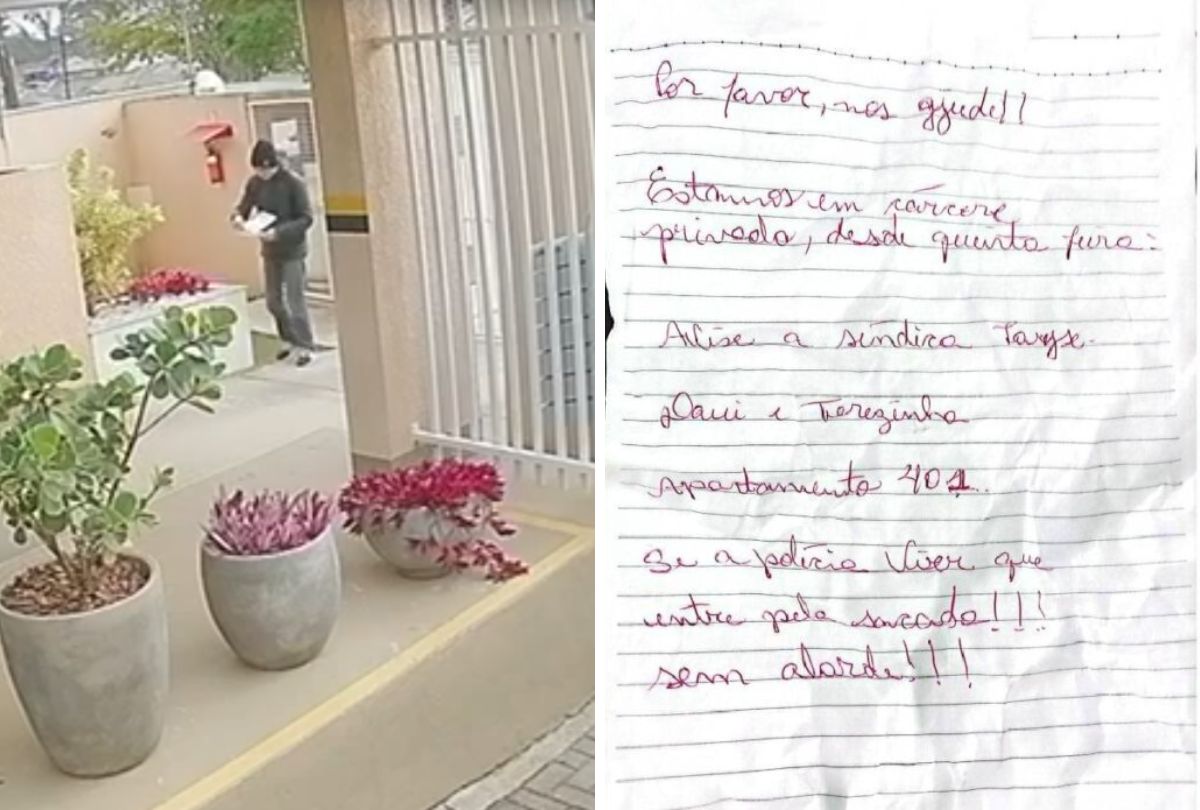 Por favor, nos ajude!!
Estamos em cárcere
privado, desde quinta feira.
Avise a síndica Tayse.
Davi e Terezinha
apartamento 401.
Se a polícia Vier que
entre pela sacada!!!
sem alarde!!!